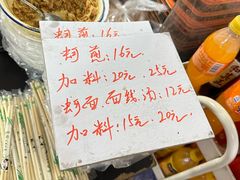 蚵煎:16元
蚵煎:16元
加料:20元.25元
蚵面.面线汤:12元
加料:15元.20元